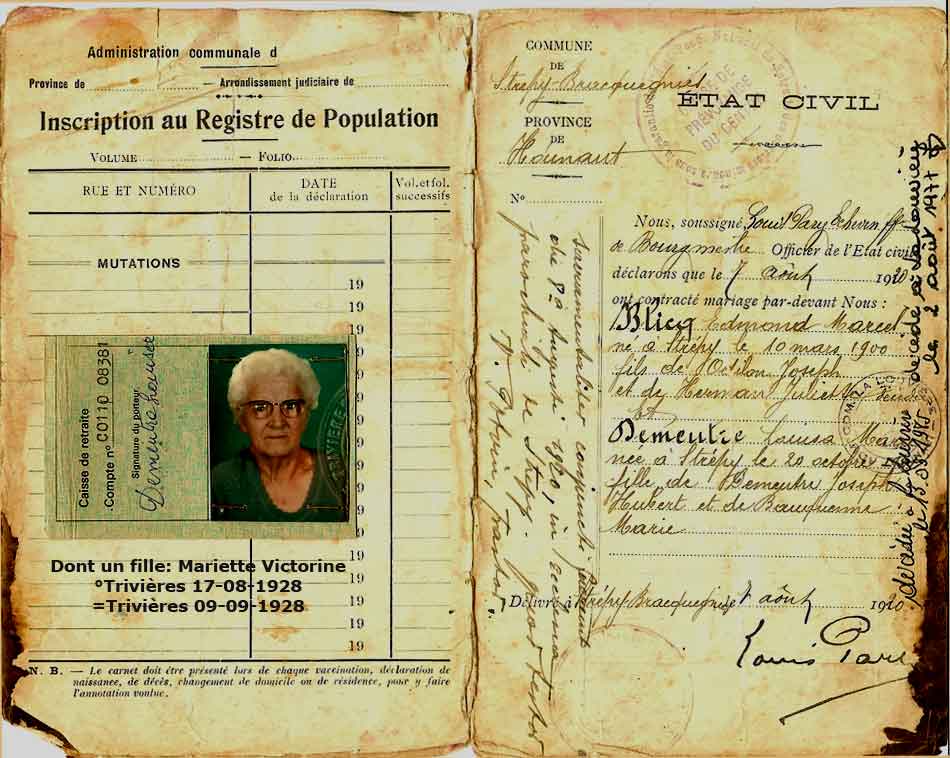 Administration communale d
Province de — Arrondissement judiciaire de
Inscription au Registre de Population
VOLUME — FOLIO
RUE ET NUMÉRO
DATE
de la déclaration
Vol. et fol.
successifs
MUTATIONS
19
19
19
Caisse de retraite
Compte n° C0110 08381
Signature du porteur
Dementre Louise
TRIVIÈRE
19
19
Dont un fille: Mariette Victorine
°Trivières 17-08-1928
=Trivières 09-09-1928
19
19
19
N. B. — Le carnet doit être présenté lors de chaque vaccination, déclaration de
naissance, de décès, changement de domicile ou de résidence, pour y faire
l'annotation voulue.
COMMUNE
DE
Strépy-Bracquegnies
PROVINCE
DE
Hainaut
N°
ÉTAT CIVIL
DE
PRÉVOYANCE
DU CENTRE
Nous, soussigné, Louis Pary Echevin ff
de Bourgmestre Officier de l'Etat civil
déclarons que le 7 août 1920
ont contracté mariage par-devant Nous :
Blicq Edmond Marcel
né à Strépy le 10 mars 1900
fils de Odilon Joseph
et de Herman Juliette
Et
Dementre Louisa Marie
née à Strépy le 20 octobre
fille de Dementre Joseph
Hubert et de Bauquenne
Marie
Délivré à Strépy-Bracquegnies 7 août 1920
Louis Pary
sacramentaliter conjuncti fuerunt
die 8a Augusti 1920, in ecclesia
parochiali de Strépy, quod testor
décédé à La Louvière
le 2 août 1977
décédée à
le 13